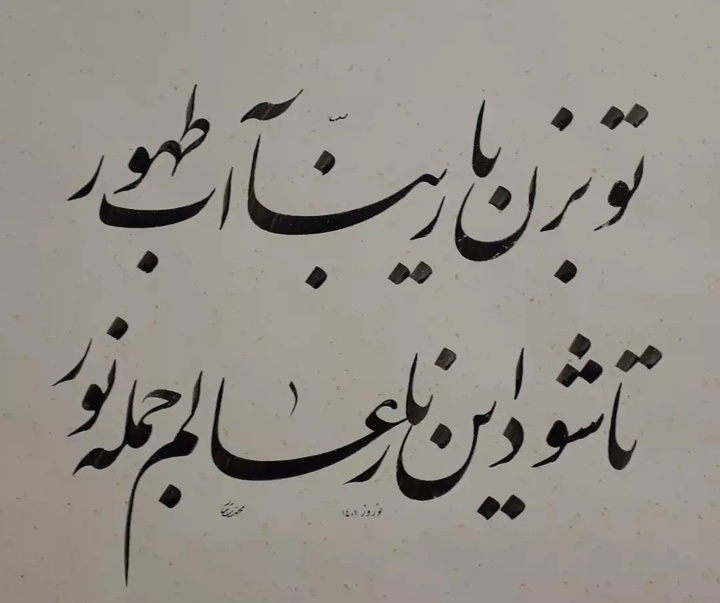 تو بزن یا ربّنا آب طهور
تا شود این نار عالم جمله نور
نوروز ۱۴۰۱